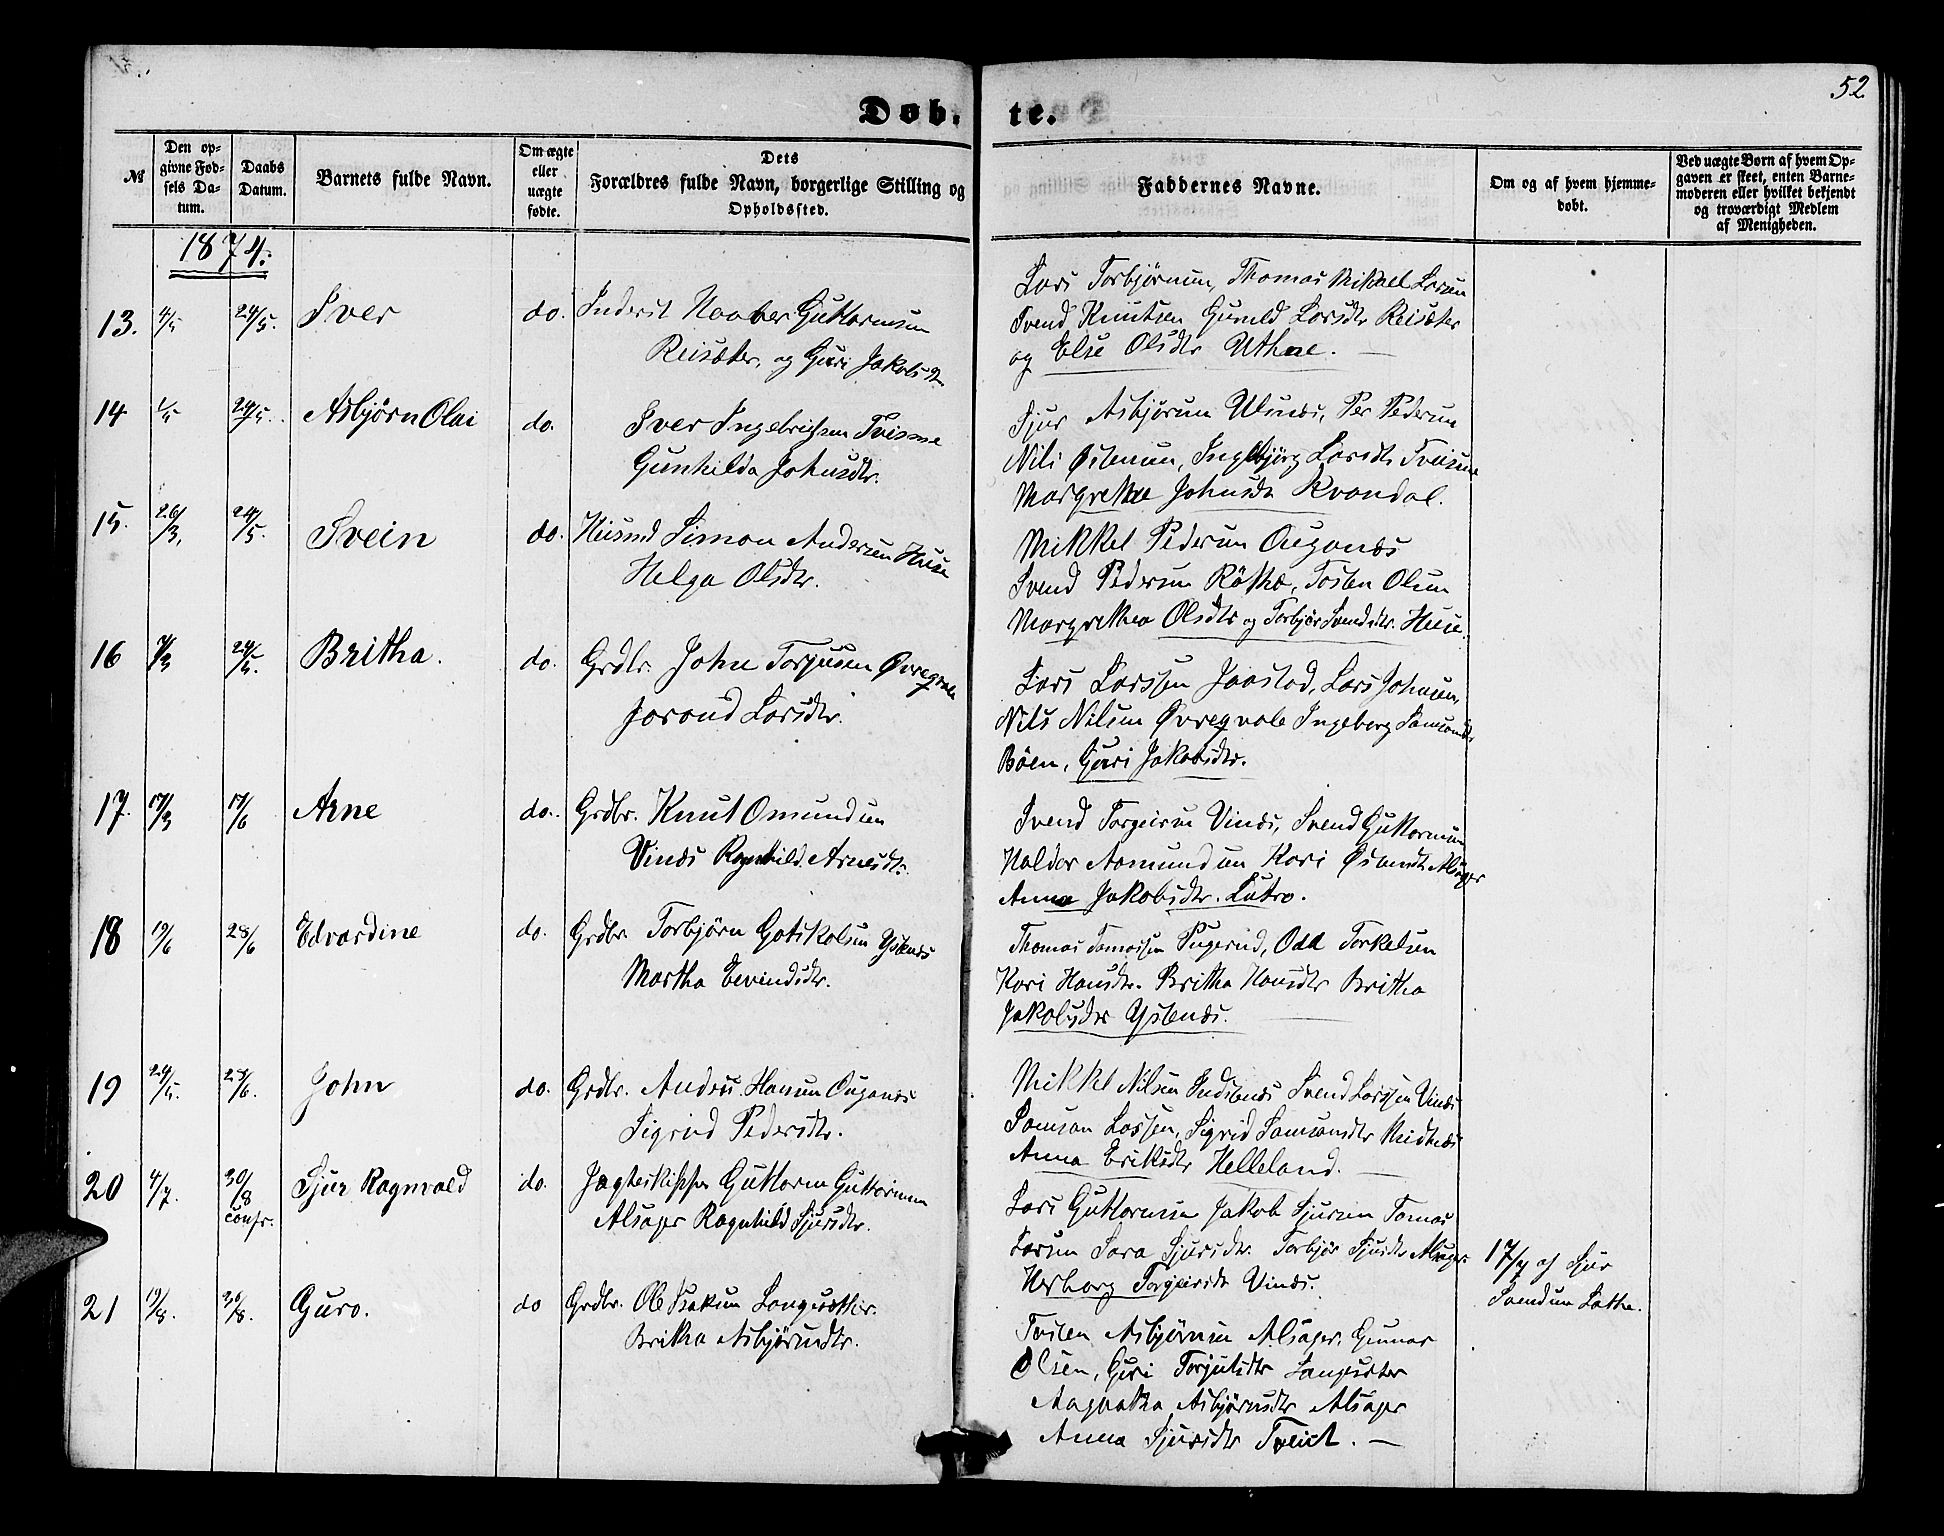 52
Døb- te.
№
Den op-
givne Fød-
sels Da-
tum.
Daabs
Datum.
Barnets fulde Navn.
Om ægte
eller
uægte
fødte.
Dets
Forældres fulde Navn, borgerlige Stilling og
Opholdssted.
Faddernes Navne.
Om og af hvem hjemme-
døbt.
Ved uægte Børn af hvem Op-
gaven er skeet, enten Barne-
moderen eller hvilket bekjendt
og troværdigt Medlem
af Menigheden.
1874.
13. 4/5 24/5. Iver do. Inderst Haaver Guttormsen
Reisæter, og Guri Jakobsdtr
Lars Torbjørnsen, Thomas Mikkel Larsen
Svend Knutsen Gunild Larsdtr Reisæter
og Else Olsdtr Uthne. —
14 1/5 24/5. Asbjørn Olai do. Iver Ingebrigtsen Tveisme
Gunhilda Johnsdtr.
Sjur Asbjørnsen Ulsnes, Per Pedersen
Nils Østensen, Ingebjørg Larsdtr Tveisme
Margrethe Johnsdtr Kvandal.
15. 26/3. 24/5. Svein do. Huusmd Simon Andersen Huse
Helga Olsdtr.
Mikkel Pedersen Ouganæs
Svend Pedersen Røthe, Tosten Olsen
Margrethea Olsdtr og Torbjør Svendsdtr. Huse.
16 7/3 24/5. Britha. do. Grdbr. John Torjusen Øvreqvale
Jorand Larsdtr.
Lars Larssen Jaastad, Lars Johnsen,
Nils Nilsen Øvreqvale Ingeborg Samsonsdtr
Böen, Guri Jakobsdtr.
17. 17/3 17/6 Arne do. Grdbr. Knut Omundsen
Vinæs Ragnhild Arnesdtr.
Svend Torgeirsen Vinæs, Svend Guttormsen
Haldor Aamundsen Kari Østensdtr Alsager
Anna Jakobsdtr. Lutro.
18 19/6 28/6 Edvardine do. Grdbr. Torbjørn Gotskalsen Ystenæs
Martha Eevindsdtr.
Thomas Tomassen Pugerud, Odd Torkelsen
Kari Hansdtr. Britha Hansdtr Britha
Jakobsdtr Ystenæs.
19 29/5. 28/6. John do. Grdbr. Andrs Hansen Ouganæs
Sigrid Pedersdtr.
Mikkel Nilsen Indstenæs Svend Larssen Vinæs
Samson Lassen, Sigrid Samsonsdtr Midtnæs
Anna Eriksdtr Helleland. —
20 4/7. 30/8 confr. Sjur Ragnvald do. Jagteskipper Guttorm Guttormsen
Alsager Ragnhild Sjursdtr.
Lars Guttormsen Jakob Sjursen Tomas
Larsen Sara Sjursdtr. Torbjør Sjursdtr Alsager
Herborg Torgeirsdtr Vinæs.
17/7 af Sjur
Svendsen Lothe.
21 19/8. 30/8. Guro. do Grdbr. Ole Isaksen Langesæther.
Britha Asbjørnsdtr.
Tosten Asbjørnsen Alsager, Gunnar
Olsen, Guri Torjulsdtr Langesæter
Aagaatha Asbjørnsdtr Alsager
Anna Sjursdtr Tveit. —